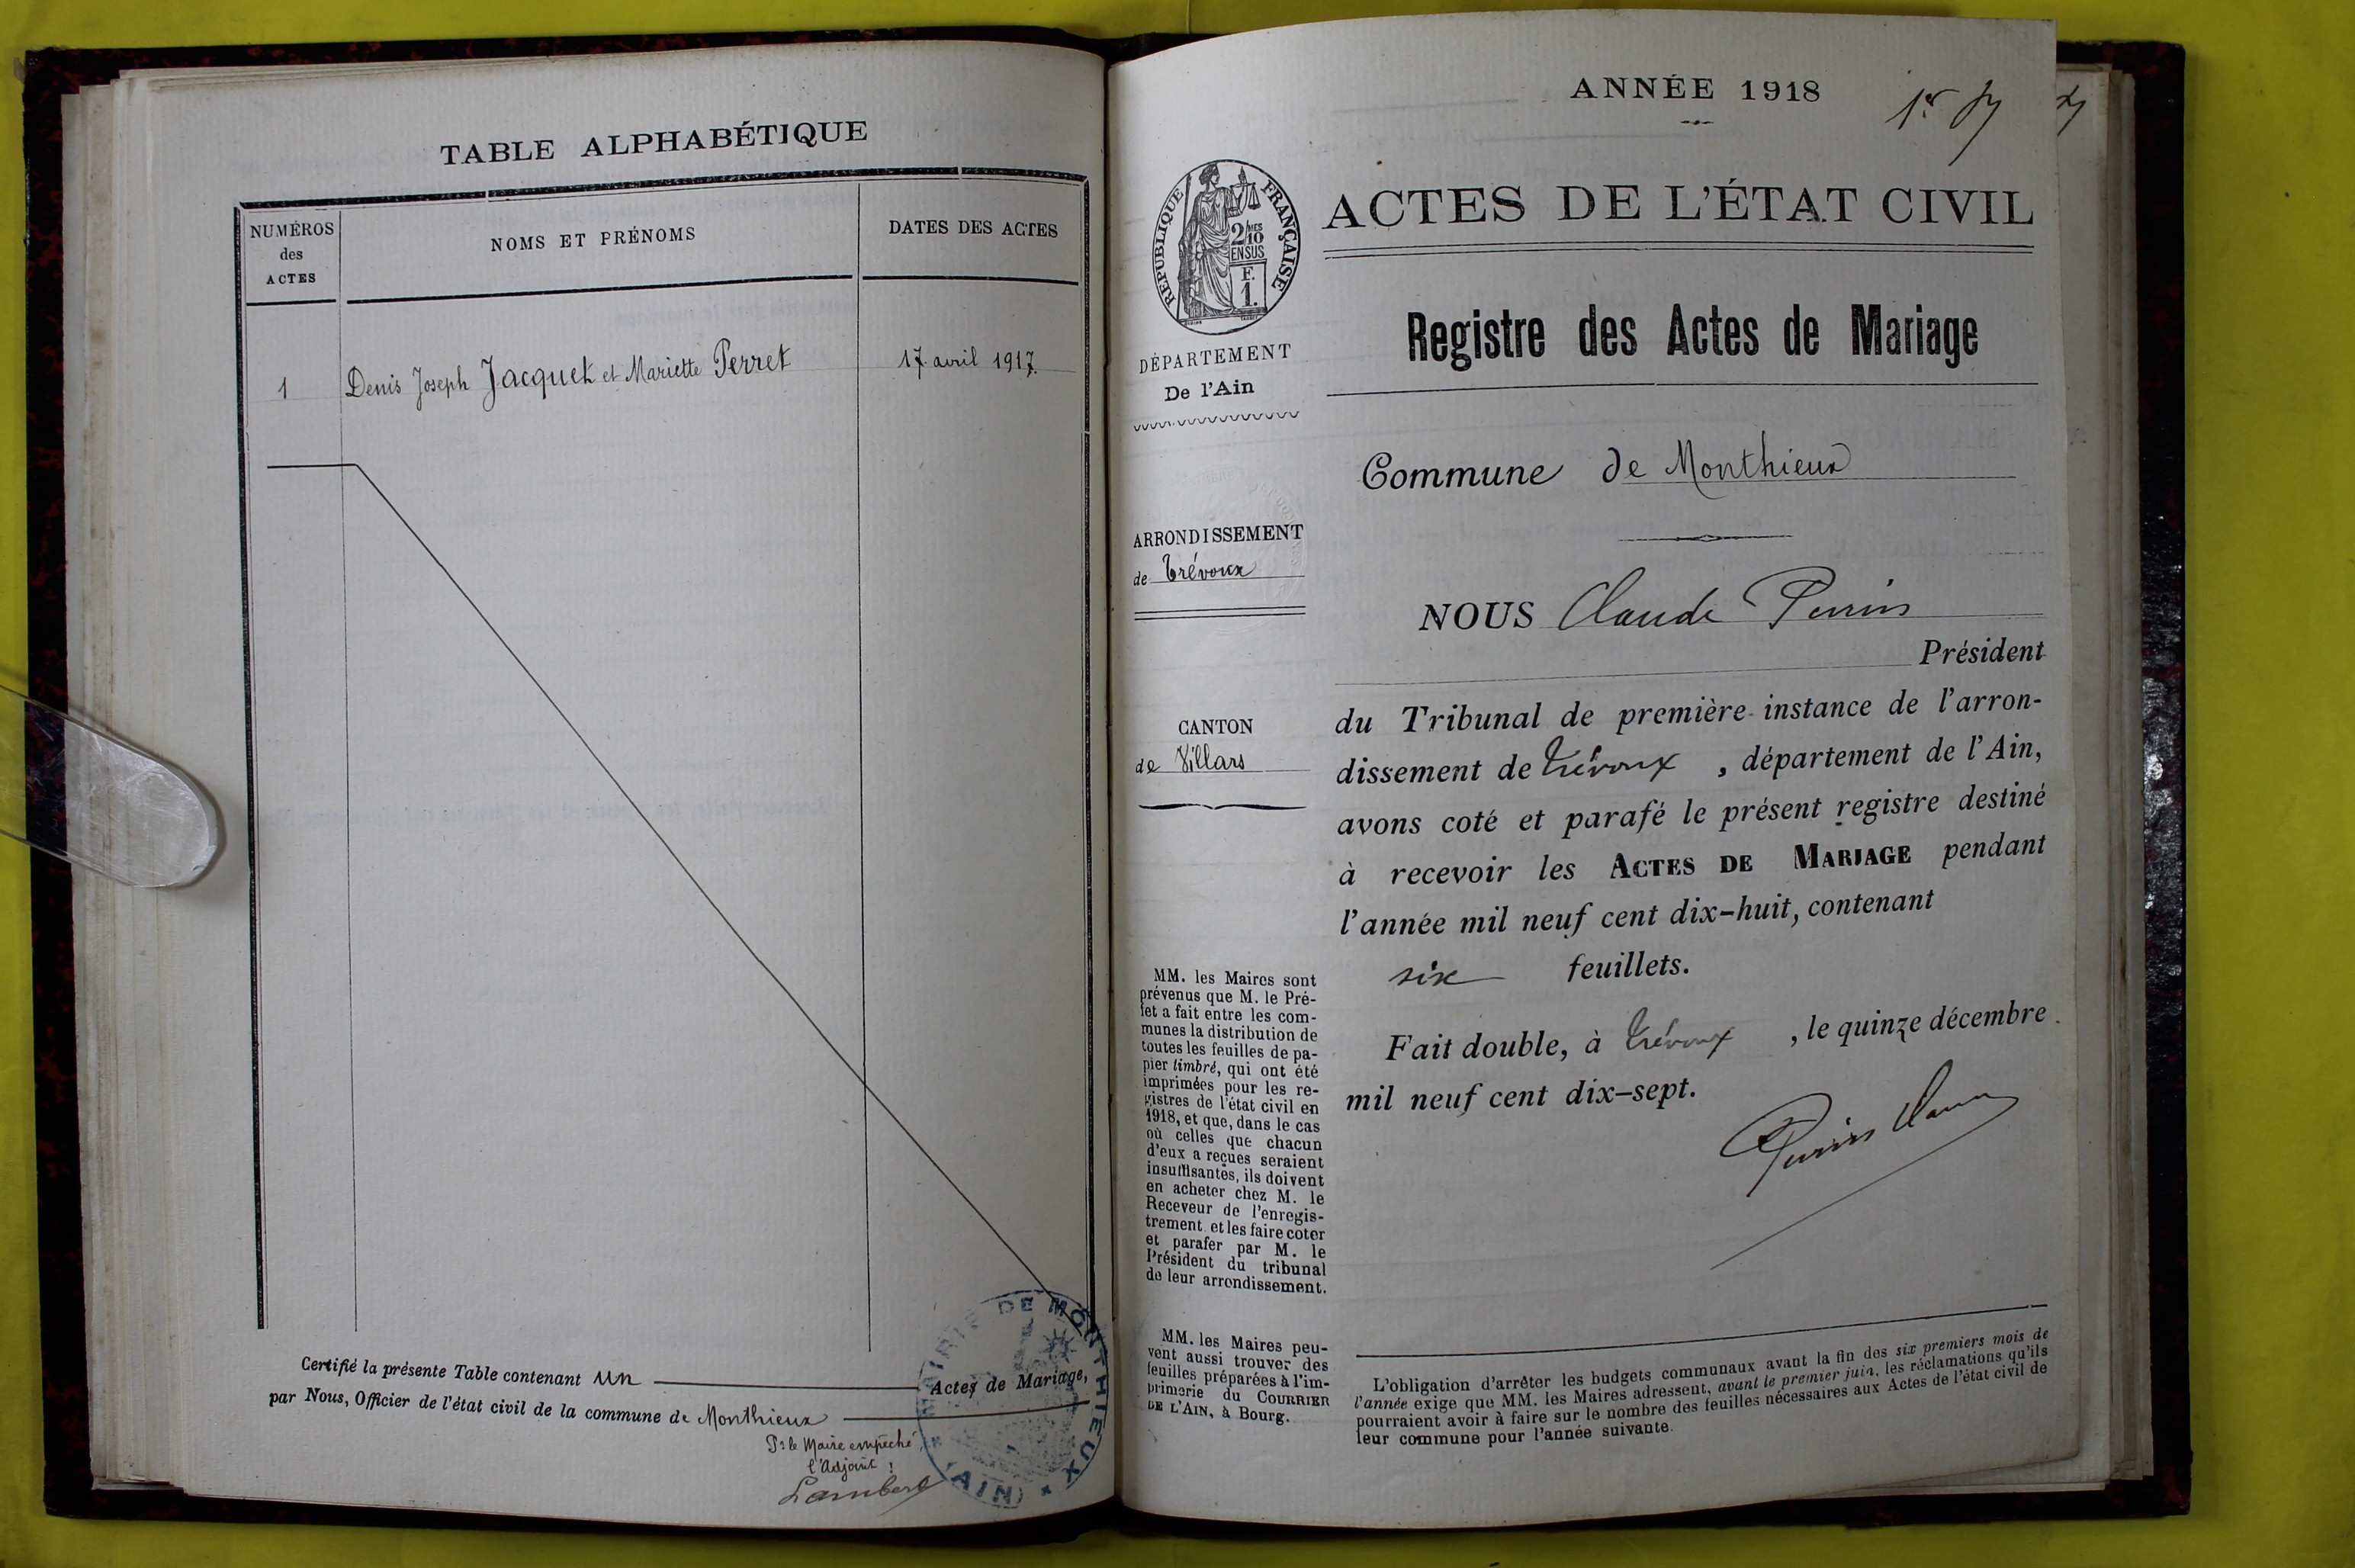 TABLE ALPHABÉTIQUE
NUMÉROS
des
ACTES
NOMS ET PRÉNOMS
DATES DES ACTES
1
Denis Joseph Jacquet et Mariette Perret
17 avril 1917.
Certifié la présente Table contenant un Actes de Mariage,
par Nous, Officier de l'état civil de la commune de Monthieux
Pr le Maire empêché
l'Adjoint :
Lambert
MAIRIE DE MONTHIEUX
(AIN)
ANNÉE 1918
1er
RÉPUBLIQUE FRANÇAISE
2/10 MES
EN SUS
F.
1.
DÉPARTEMENT
De l'Ain
ARRONDISSEMENT
de Trévoux
CANTON
de Villars
MM. les Maires sont
prévenus que M. le Pré-
fet a fait entre les com-
munes la distribution de
toutes les feuilles de pa-
pier timbré, qui ont été
imprimées pour les re-
gistres de l'état civil en
1918, et que, dans le cas
où celles que chacun
d'eux a reçues seraient
insuffisantes, ils doivent
en acheter chez M. le
Receveur de l'enregis-
trement et les faire coter
et parafer par M. le
Président du tribunal
de leur arrondissement.
MM. les Maires peu-
vent aussi trouver des
feuilles préparées à l'im-
primerie du COURRIER
DE L'AIN, à Bourg.
ACTES DE L'ÉTAT CIVIL
Registre des Actes de Mariage
Commune de Monthieux
NOUS Claude Perrin
Président
du Tribunal de première instance de l'arron-
dissement de Trévoux, département de l'Ain,
avons coté et parafé le présent registre destiné
à recevoir les ACTES DE MARIAGE pendant
l'année mil neuf cent dix-huit, contenant
six feuillets.
Fait double, à Trévoux, le quinze décembre
mil neuf cent dix-sept.
Perrin Claude
L'obligation d'arrêter les budgets communaux avant la fin des six premiers mois de
l'année exige que MM. les Maires adressent, avant le premier juin, les réclamations qu'ils
pourraient avoir à faire sur le nombre des feuilles nécessaires aux Actes de l'état civil de
leur commune pour l'année suivante.